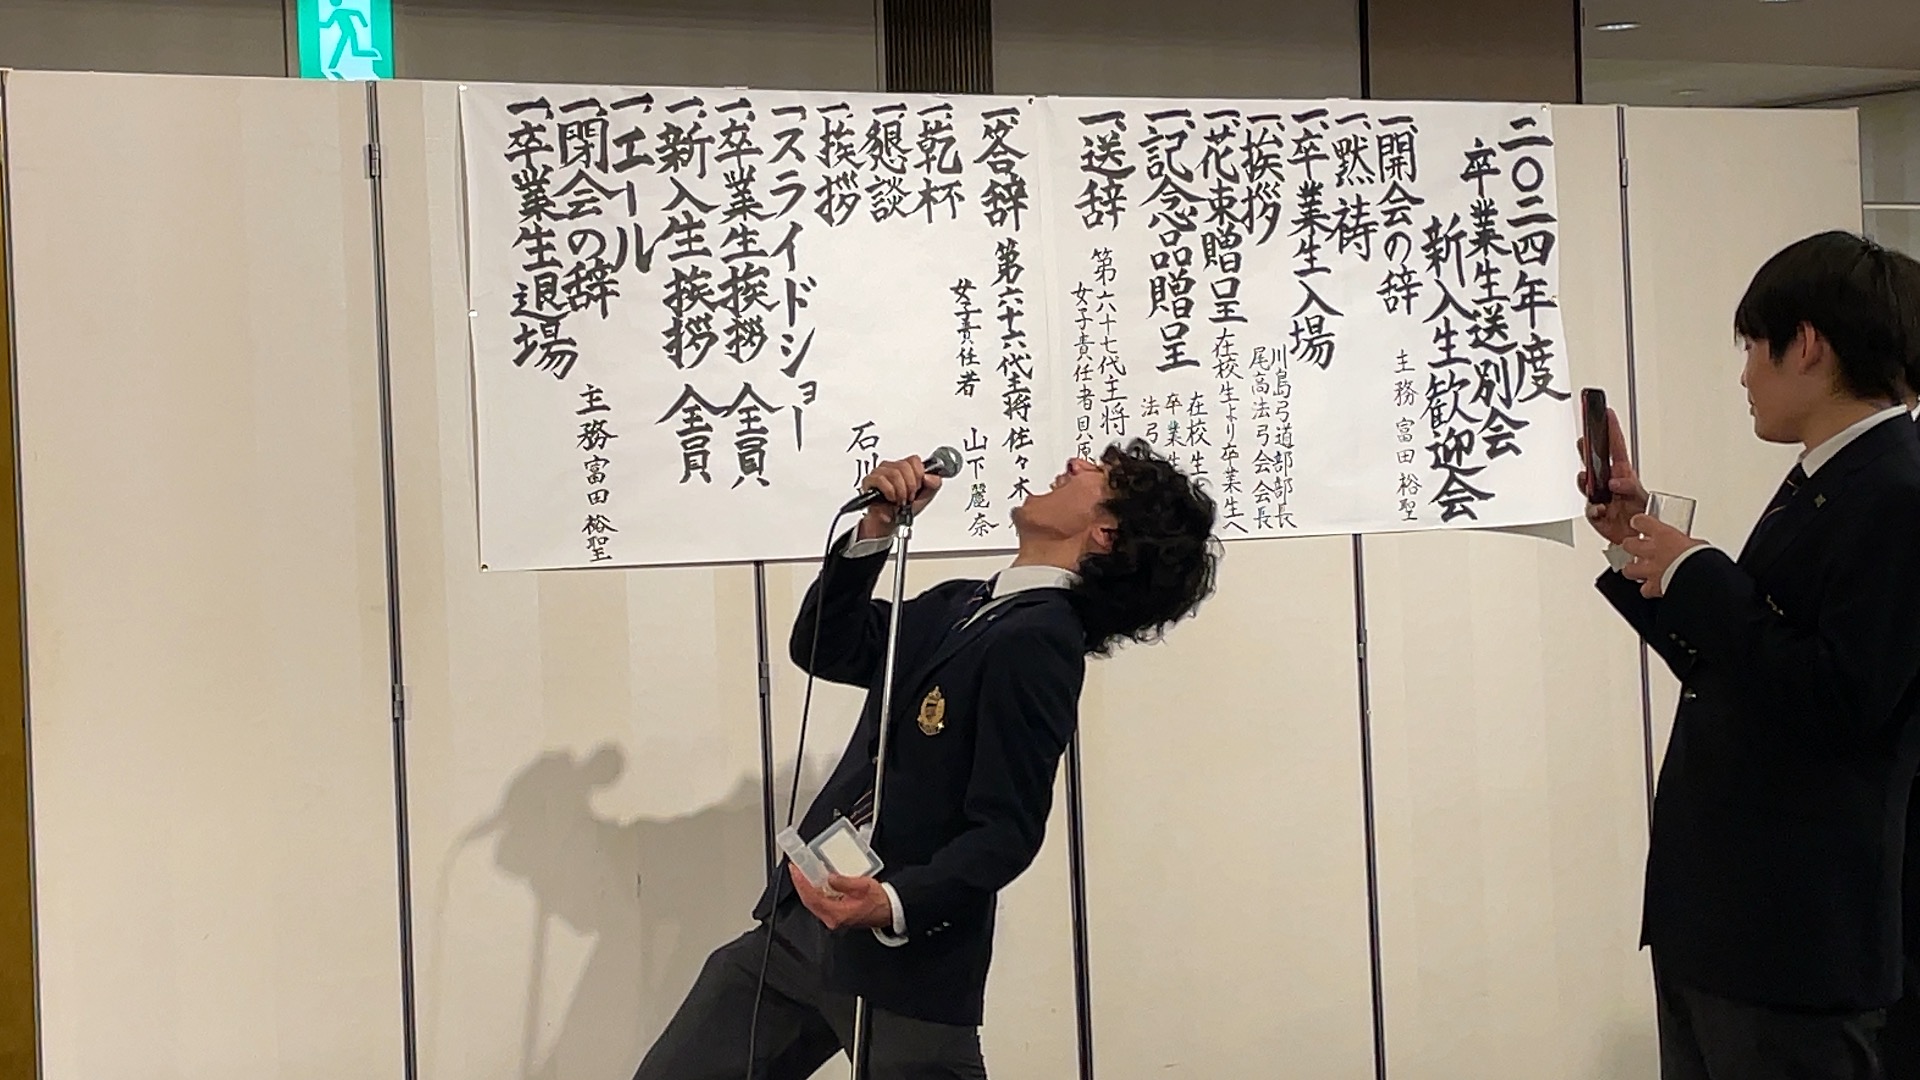 二〇二四年度
卒業生送別会
新入生歓迎会
一、開会の辞 主務 富田裕聖
一、黙祷
一、卒業生入場
一、挨拶 川島弓道部部長
尾高法弓会会長
一、花束贈呈 在校生より卒業生へ
一、記念品贈呈 在校生
卒業生
法弓
一、送辞 第六十七代主将
女子責任者 貝原
一、答辞 第六十六代主将 佐々木
女子責任者 山下麗奈
一、乾杯
一、懇談
一、挨拶 石川
一、スライドショー
一、卒業生挨拶 全員
一、新入生挨拶 全員
一、エール
一、閉会の辞 主務 富田裕聖
一、卒業生退場